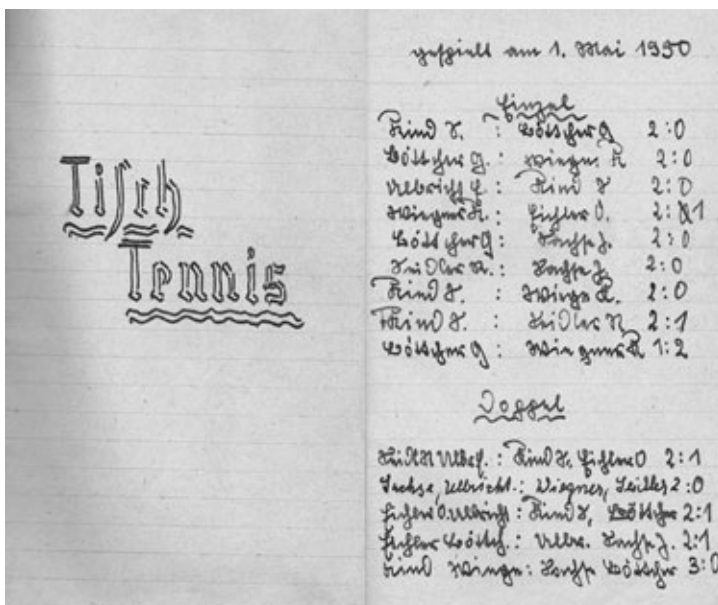 Tisch
Tennis
gespielt am 1. Mai 1950
Einzel
Rind S. : Böttcher G 2:0
Böttcher G. : Wieger R 2:0
Ulbricht E. : Rind S 2:0
Wieger R. : Eichler O. 2:1
Böttcher G : Sachse J. 2:0
Seidler R. : Sachse J. 2:0
Rind S. : Wiege R. 2:0
Rind S. : Seidler R 2:1
Böttcher G : Wiegner R 1:2
Doppel
Seidl R Ulbr. : Rind S. Eichler O 2:1
Sachse, Ulbricht. : Wiegner, Seidler 2:0
Eichler O Ulbricht : Rind S, Böttcher 2:1
Eichler Böttch. : Ulbr. Sachse J. 2:1
Rind Wiege : Sachse Böttcher 3:0